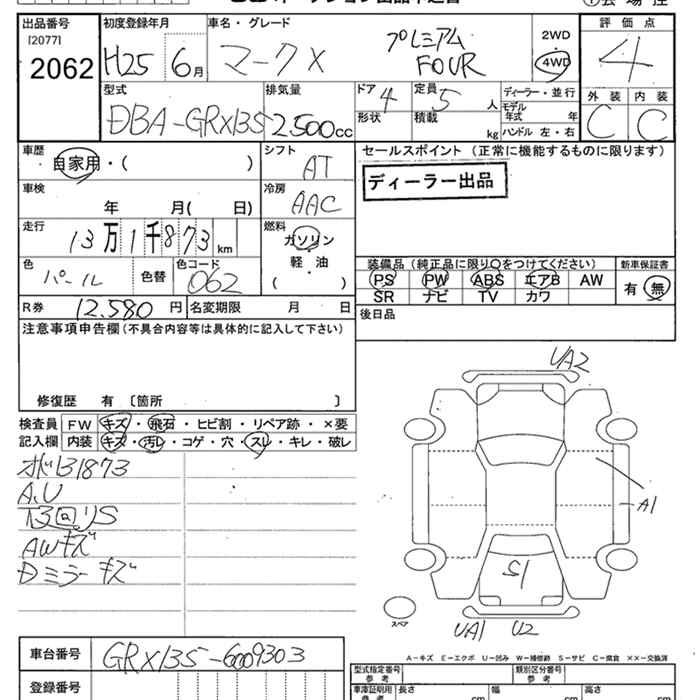 出品番号 初度登録年月 車名・グレード 評価点
[2077]
2062 H25 6月 マークX プレミアム FOUR 2WD 4WD 4
型式 排気量 ドア 4 定員 5人 ディーラー・並行 外装 内装
DBA-GRX135 2,500cc 形状 積載 kg モデル年式 年 C C
ハンドル 左・右
車歴 シフト セールスポイント (正常に機能するものに限ります)
自家用・( ) AT
ディーラー出品
車検 冷房
年 月( 日) AAC
走行 燃料
13万1千873km ガソリン
軽・油
( )
色 パール 色替 色コード 062
装備品(純正品に限り○をつけてください) 新車保証書
PS PW ABS エアB AW 有 無
SR ナビ TV カワ
R券 12,580円 名変期限 月 日 後日品
注意事項申告欄(不具合内容等は具体的に記入して下さい)
修復歴 有 〔箇所 〕
検査員 FW キズ・飛石・ヒビ割・リペア跡・×要
記入欄 内装 キズ・汚レ・コゲ・穴・スレ・キレ・破レ
A.U
AWキズ
Dミラーキズ
UA2
A1
S1
UA1 U2
スペア
車台番号 GRX135-6009303
A-キズ E-エクボ U-凹み W-補修跡 S-サビ C-腐食 ××-交換済
登録番号
型式指定番号 類別区分番号
参考 参考
車庫証明用 長さ 幅 高さ
参考 cm cm cm